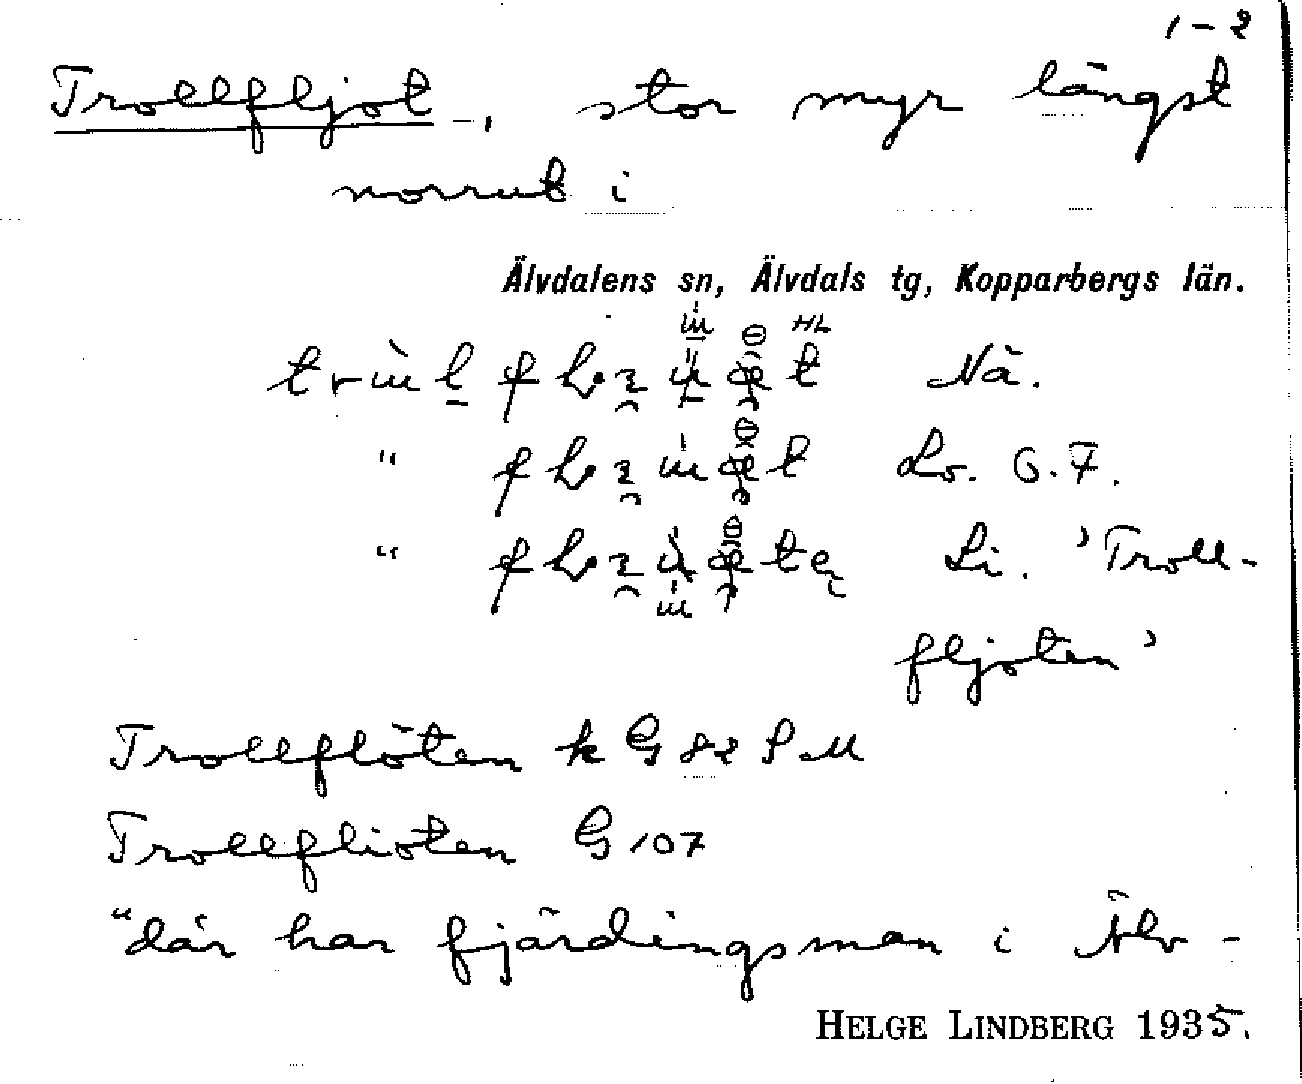 1-2
Trollfljot -, stor myr längst
norrut i
Älvdalens sn, Älvdals tg, Kopparbergs län.
HL
Nä.
" Lo. G.7.
" Li. 'Troll-
fljoten'
Trollflöten k G 82 SM
Trollflioten G 107
"där har fjärdingsman i Älv-
HELGE LINDBERG 1935.